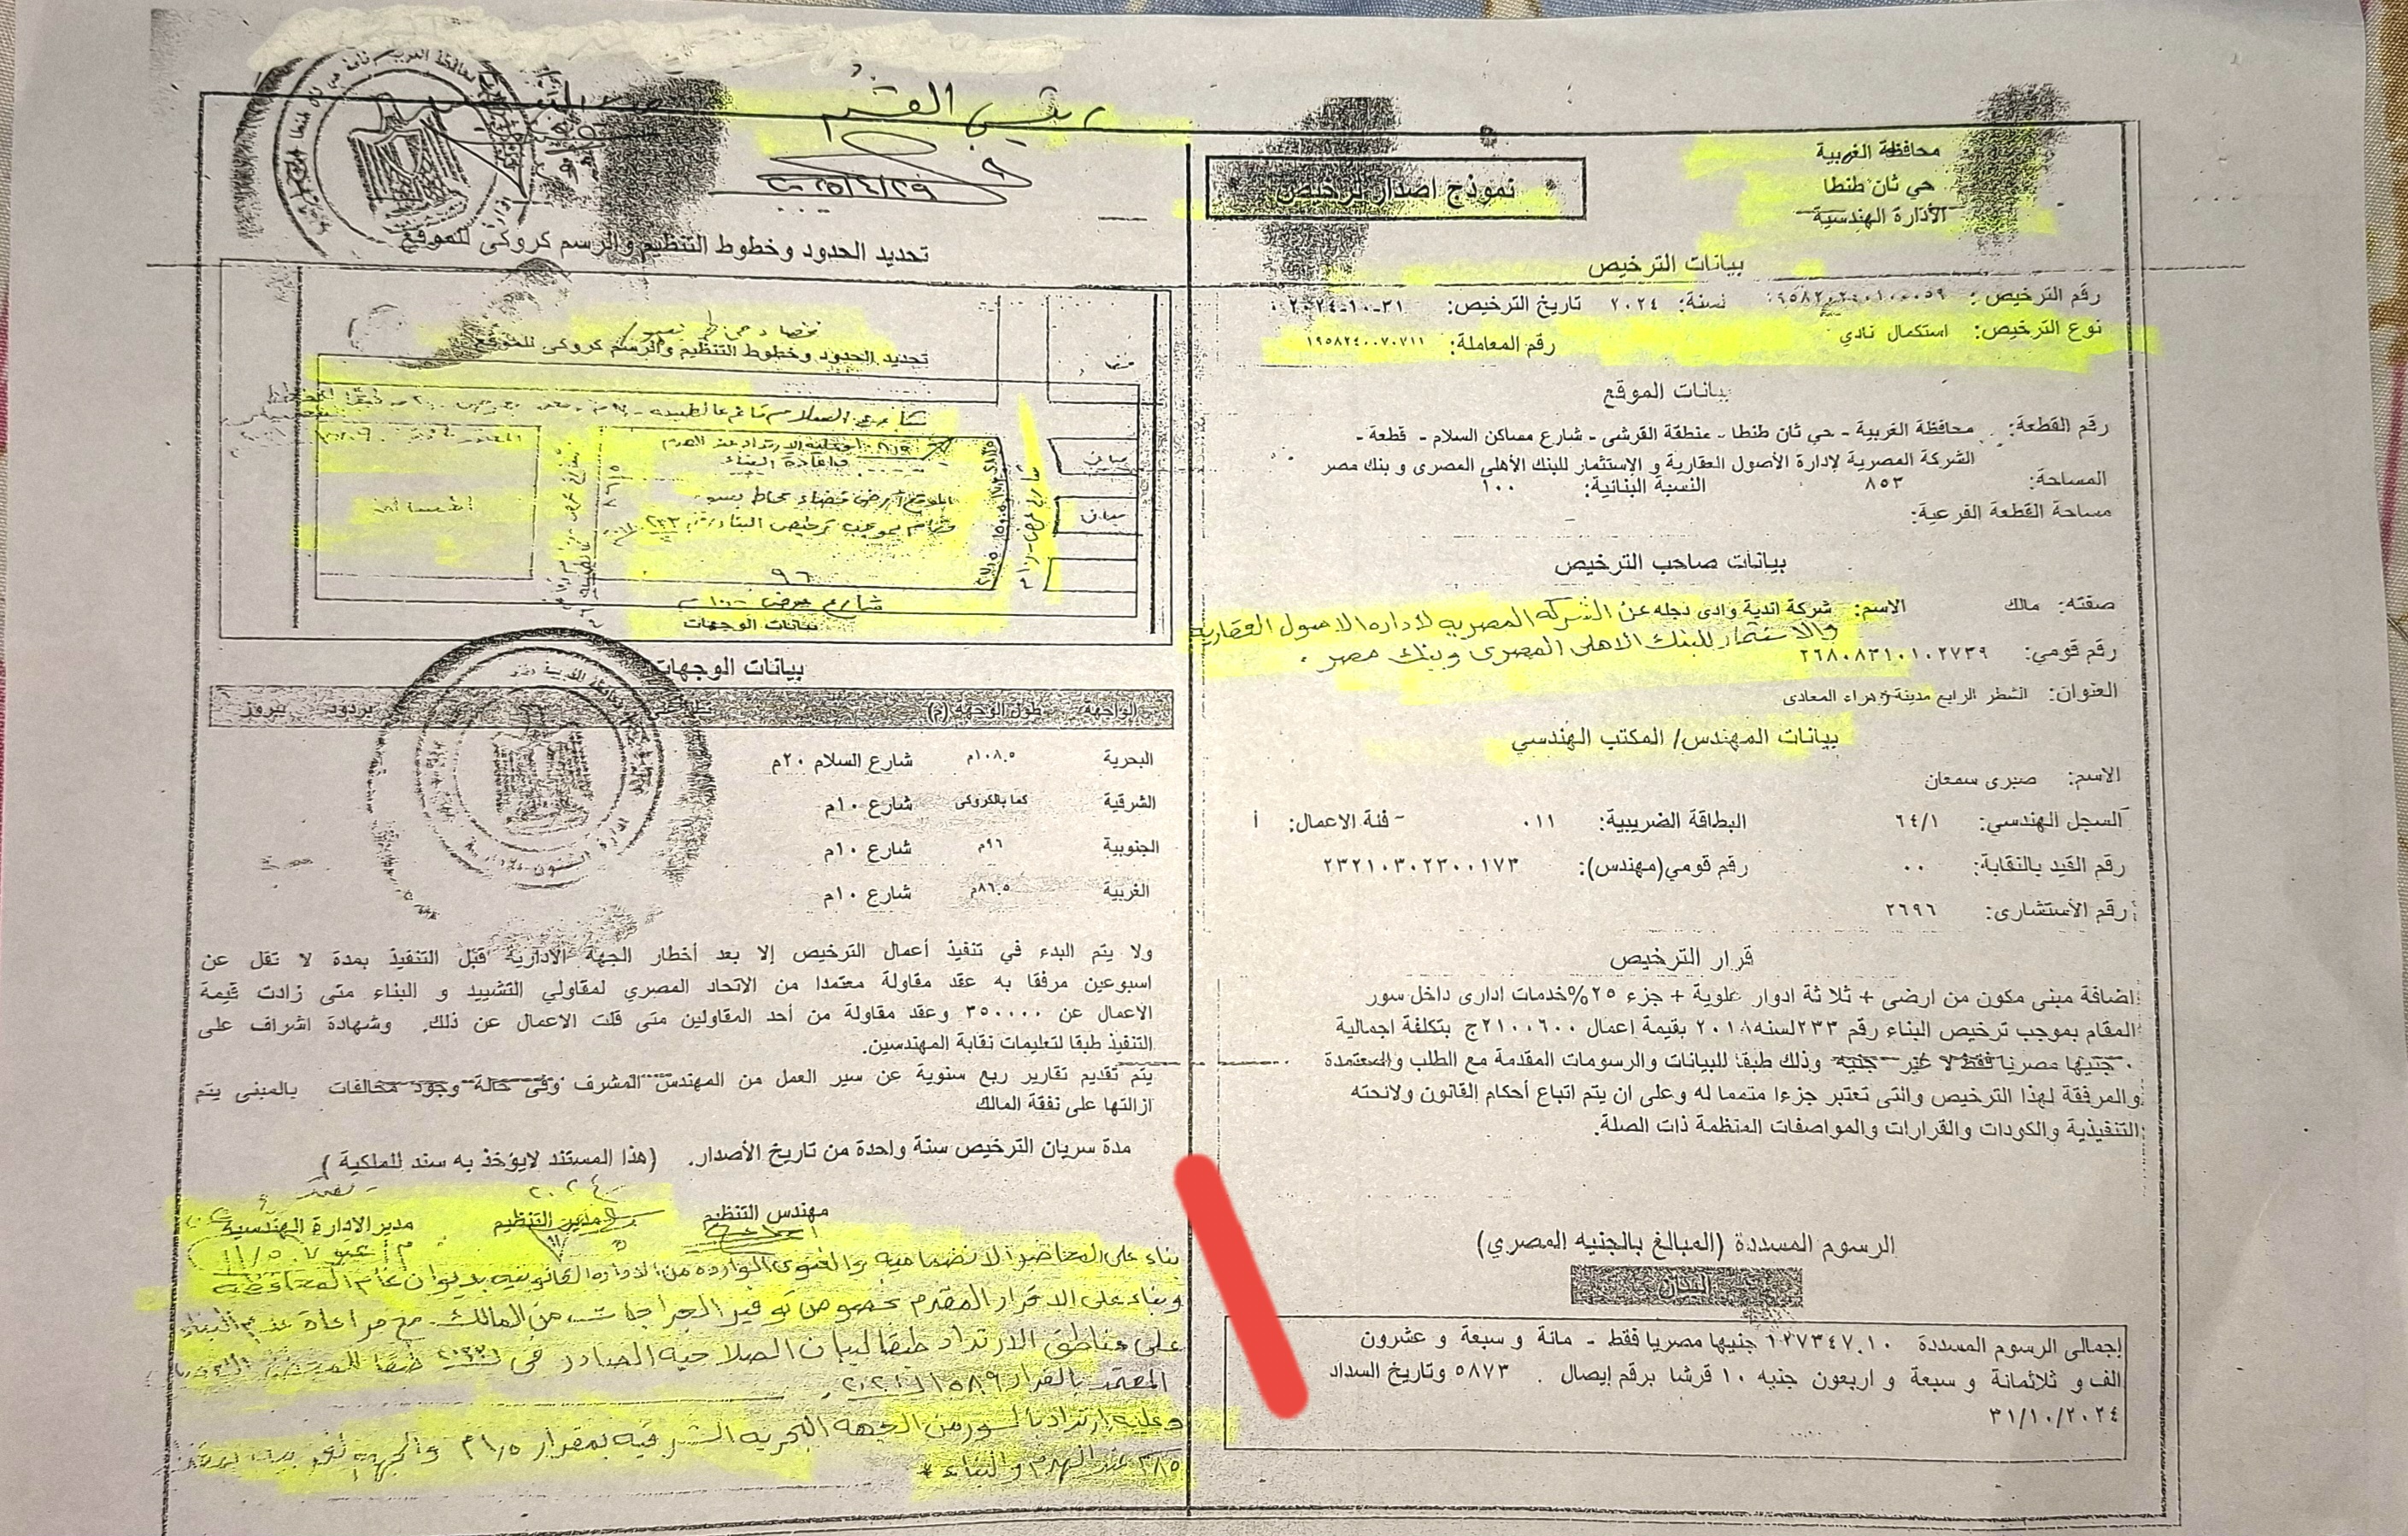 محافظة الغربية
حي ثان طنطا
الأدارة الهندسية
نموذج اصدار ترخيص
بيانات الترخيص
رقم الترخيص: نسنة: ٢٠٢٤ تاريخ الترخيص: ٣١-١٠-٢٠٢٤
نوع الترخيص: استكمال نادي رقم المعاملة: ١٩٥٨٢٤٠٠٧٠٧١١
بيانات الموقع
رقم القطعة: محافظة الغربية - حي ثان طنطا - منطقة القرشى - شارع مساكن السلام - قطعة -
الشركة المصرية لإدارة الأصول العقارية و الإستثمار للبنك الأهلى المصرى و بنك مصر
المساحة: ٨٥٣ النسبة البنائية: ١٠٠
مساحة القطعة الفرعية:
بيانات صاحب الترخيص
صفته: مالك الاسم: شركة اندية وادى دجله عن الشركه المصريه لاداره الاصول العقاريه
والاستثمار للبنك الاهلى المصرى وبنك مصر .
رقم قومي: ٢٦٨٠٨٣١٠١٠٢٧٣٩
العنوان: الشطر الرابع مدينة زهراء المعادى
بيانات المهندس/ المكتب الهندسي
الاسم: صبرى سمعان
السجل الهندسي: ٦٤/١ البطاقة الضريبية: ٠١١ - فئة الاعمال: أ
رقم القيد بالنقابة: ٠٠ رقم قومي(مهندس): ٢٣٢١٠٣٠٢٣٠٠١٧٣
رقم الأستشارى: ٢٦٩٦
قرار الترخيص
اضافة مبنى مكون من ارضى + ثلاثة ادوار علوية + جزء ٢٥%خدمات ادارى داخل سور
المقام بموجب ترخيص البناء رقم ٢٣٣لسنه بقيمة اعمال ٢١٠٠٦٠٠ج بتكلفة اجمالية
٠ جنيها مصريا فقط لا غير جنيه وذلك طبقا للبيانات والرسومات المقدمة مع الطلب والمعتمدة
والمرفقة لهذا الترخيص والتى تعتبر جزءا متمما له وعلى ان يتم اتباع أحكام القانون ولائحته
التنفيذية والكودات والقرارات والمواصفات المنظمة ذات الصلة.
الرسوم المسددة (المبالغ بالجنيه المصري)
البيان
إجمالى الرسوم المسددة ١٢٧٣٤٧.١٠ جنيها مصريا فقط - مائة و سبعة و عشرون
الف و ثلاثمائة و سبعة و اربعون جنيه ١٠ قرشا برقم إيصال . ٥٨٧٣ وتاريخ السداد
٣١/١٠/٢٠٢٤
رئيس القسم
٢٠٢٥/٤/٢٩
تحديد الحدود وخطوط التنظيم والرسم كروكى للموقع
تحديد الحدود وخطوط التنظيم والرسم كروكى للموقع
واعادة البناء
الموقع أرض فضاء محاط بسور
مقام بموجب ترخيص البناء ٢٣٣
مبانى
مبانى
٩٦
شارع عرض ١٠م
بيانات الوجهات
بيانات الوجهات
الواجهة طول الوجهة (م) بردود بيروز
البحرية ١٠٨.٥م شارع السلام ٢٠م
الشرقية كما بالكروكى شارع ١٠م
الجنوبية ٩٦م شارع ١٠م
الغربية ٨٦.٥م شارع ١٠م
ولا يتم البدء في تنفيذ أعمال الترخيص إلا بعد أخطار الجهة الادارية قبل التنفيذ بمدة لا تقل عن
اسبوعين مرفقا به عقد مقاولة معتمدا من الاتحاد المصري لمقاولي التشييد و البناء متى زادت قيمة
الاعمال عن ٣٥٠٠٠٠ وعقد مقاولة من أحد المقاولين متى قلت الاعمال عن ذلك. وشهادة اشراف على
التنفيذ طبقا لتعليمات نقابة المهندسين.
يتم تقديم تقارير ربع سنوية عن سير العمل من المهندس المشرف وفى حالة وجود مخالفات بالمبنى يتم
ازالتها على نفقة المالك
مدة سريان الترخيص سنة واحدة من تاريخ الأصدار. (هذا المستند لايؤخذ به سند للملكية )
مهندس التنظيم مدير التنظيم مدير الادارة الهندسية
بناء على المحاضر الانضماميه والفتوى الوارده من الاداره القانونيه بديوان عام المحافظه
وبناء على الاقرار المقدم بخصوص توفير الجراجات من المالك مع مراعاة عدم البناء
على مناطق الارتداد طبقا لبيان الصلاحيه الصادر فى طبقا للمخطط
المعتمد بالقرار
وعليه ارتداد بالسور من الجهه البحريه الشرقيه بمقدار ١.٥م والجهه
عند الهدم والبناء *